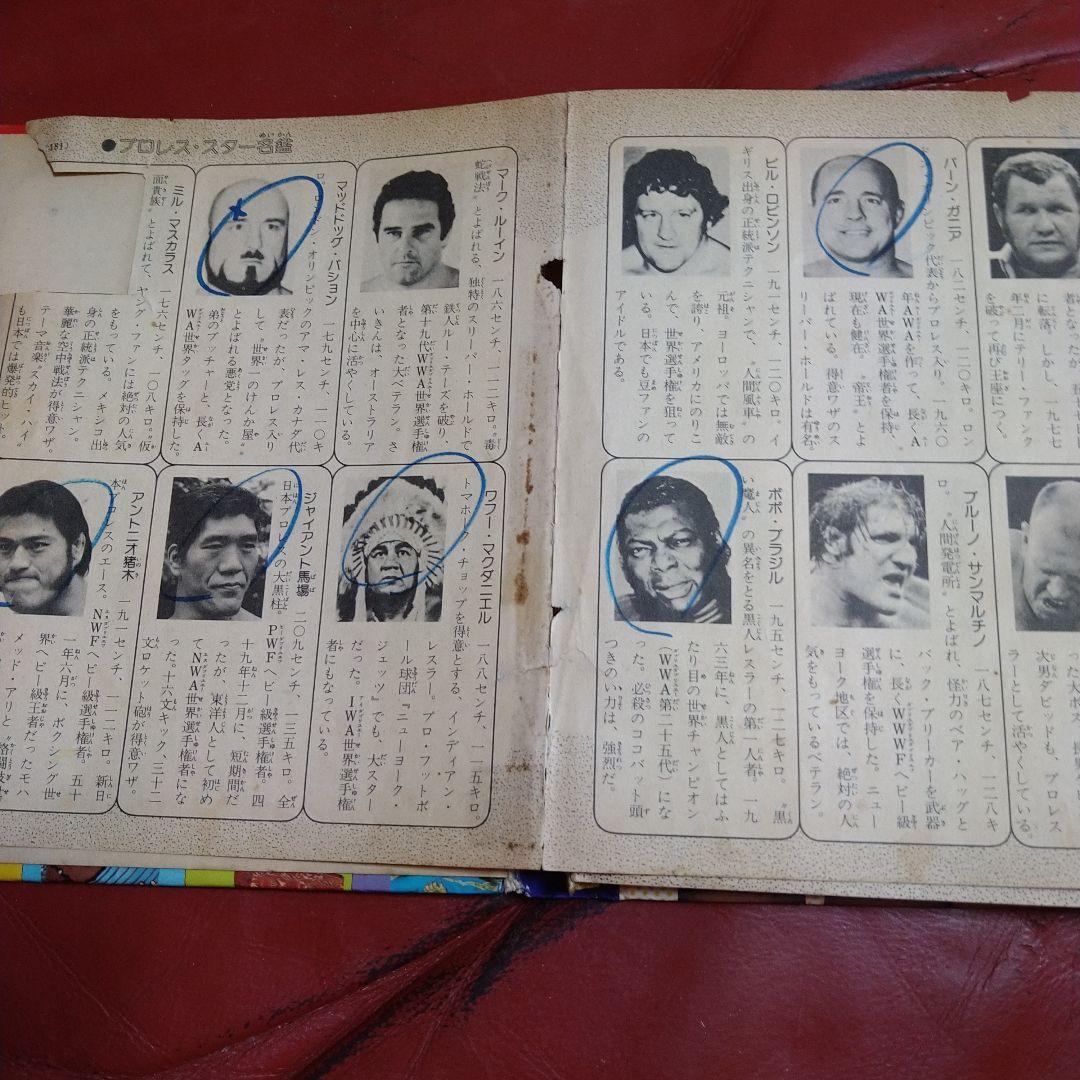 ●プロレス・スター名鑑
ビル・ロビンソン 一九一センチ、一二〇キロ。イ
ギリス出身の正統派テクニシャンで、〝人間風車〟の
元祖。ヨーロッパでは無敵
を誇り、アメリカにのりこ
んで、世界選手権を狙って
いる。日本でも豆ファンの
アイドルである。
バーン・ガニア 一八二センチ、一二〇キロ。ロン
ンピック代表からプロレス入り。一九六〇
年AWAを作って、長くA
WA世界選手権者を保持。
現在も健在。〝帝王〟とよ
ばれている。得意ワザのス
リーパー・ホールドは有名。
に転落。しかし、一九七七
年二月にテリー・ファンク
を破って再び王座につく。
ボボ・ブラジル 一九五センチ、一二七キロ。〝黒
い魔人〟の異名をとる黒人レスラーの第一人者。一九
六三年に、黒人としてはふ
たり目の世界チャンピオン
(WWA第二十五代)にな
った。必殺のココバット頭
つきの威力は、強烈だ。
ブルーノ・サンマルチノ 一八七センチ、一二八キ
ロ。〝人間発電所〟とよばれ、怪力のベア・ハッグと
バック・ブリーカーを武器
に、長くWWWFヘビー級
選手権を保持した。ニュー
ヨーク地区では、絶対の人
気をもっているベテラン。
次男ダビッドも、プロレス
ラーとして活やくしている。
マーク・ルーイン 一八六センチ、一一二キロ。〝毒
蛇戦法〟とよばれる、独特のスリーパー・ホールドで
鉄人ルー・テーズを破り、
第十九代WWA世界選手権
者となった大ベテラン。さ
いきんは、オーストラリア
を中心に活やくしている。
マッドドッグ・バション 一七九センチ、一一〇キ
ロ。ロンドン・オリンピックのアマ・レス、カナダ代
表だったが、プロレス入り
して〝世界一のけんか屋〟
とよばれる悪党となった。
弟のブッチャーと、長くA
WA世界タッグを保持した。
ミル・マスカラス 一七六センチ、一〇八キロ。〝仮
面貴族〟とよばれて、ヤング・ファンには絶対の人気
をもっている。メキシコ出
身の正統派テクニシャン。
華麗な空中戦法が得意ワザ。
テーマ音楽〝スカイ・ハイ〟
も日本では爆発的ヒット。
ワフー・マクダニエル 一八八センチ、一一五キロ。
トマホーク・チョップを得意とする、インディアン・
レスラー。プロ・フットボ
ール球団『ニューヨーク・
ジェッツ』でも、大スター
だった。IWA世界選手権
者にもなっている。
ジャイアント馬場 二〇九センチ、一三五キロ。全
日本プロレスの大黒柱。PWFヘビー級選手権者。四
十九年十二月に、短期間だ
ったが、東洋人として初め
てNWA世界選手権者にな
った。十六文キック、三十二
文ロケット砲が得意ワザ。
アントニオ猪木 一九一センチ、一一二キロ。新日
本プロレスのエース。NWFヘビー級選手権者。五十
一年六月に、ボクシング世
界ヘビー級王者だったモハ
メッド・アリと〝格闘技世